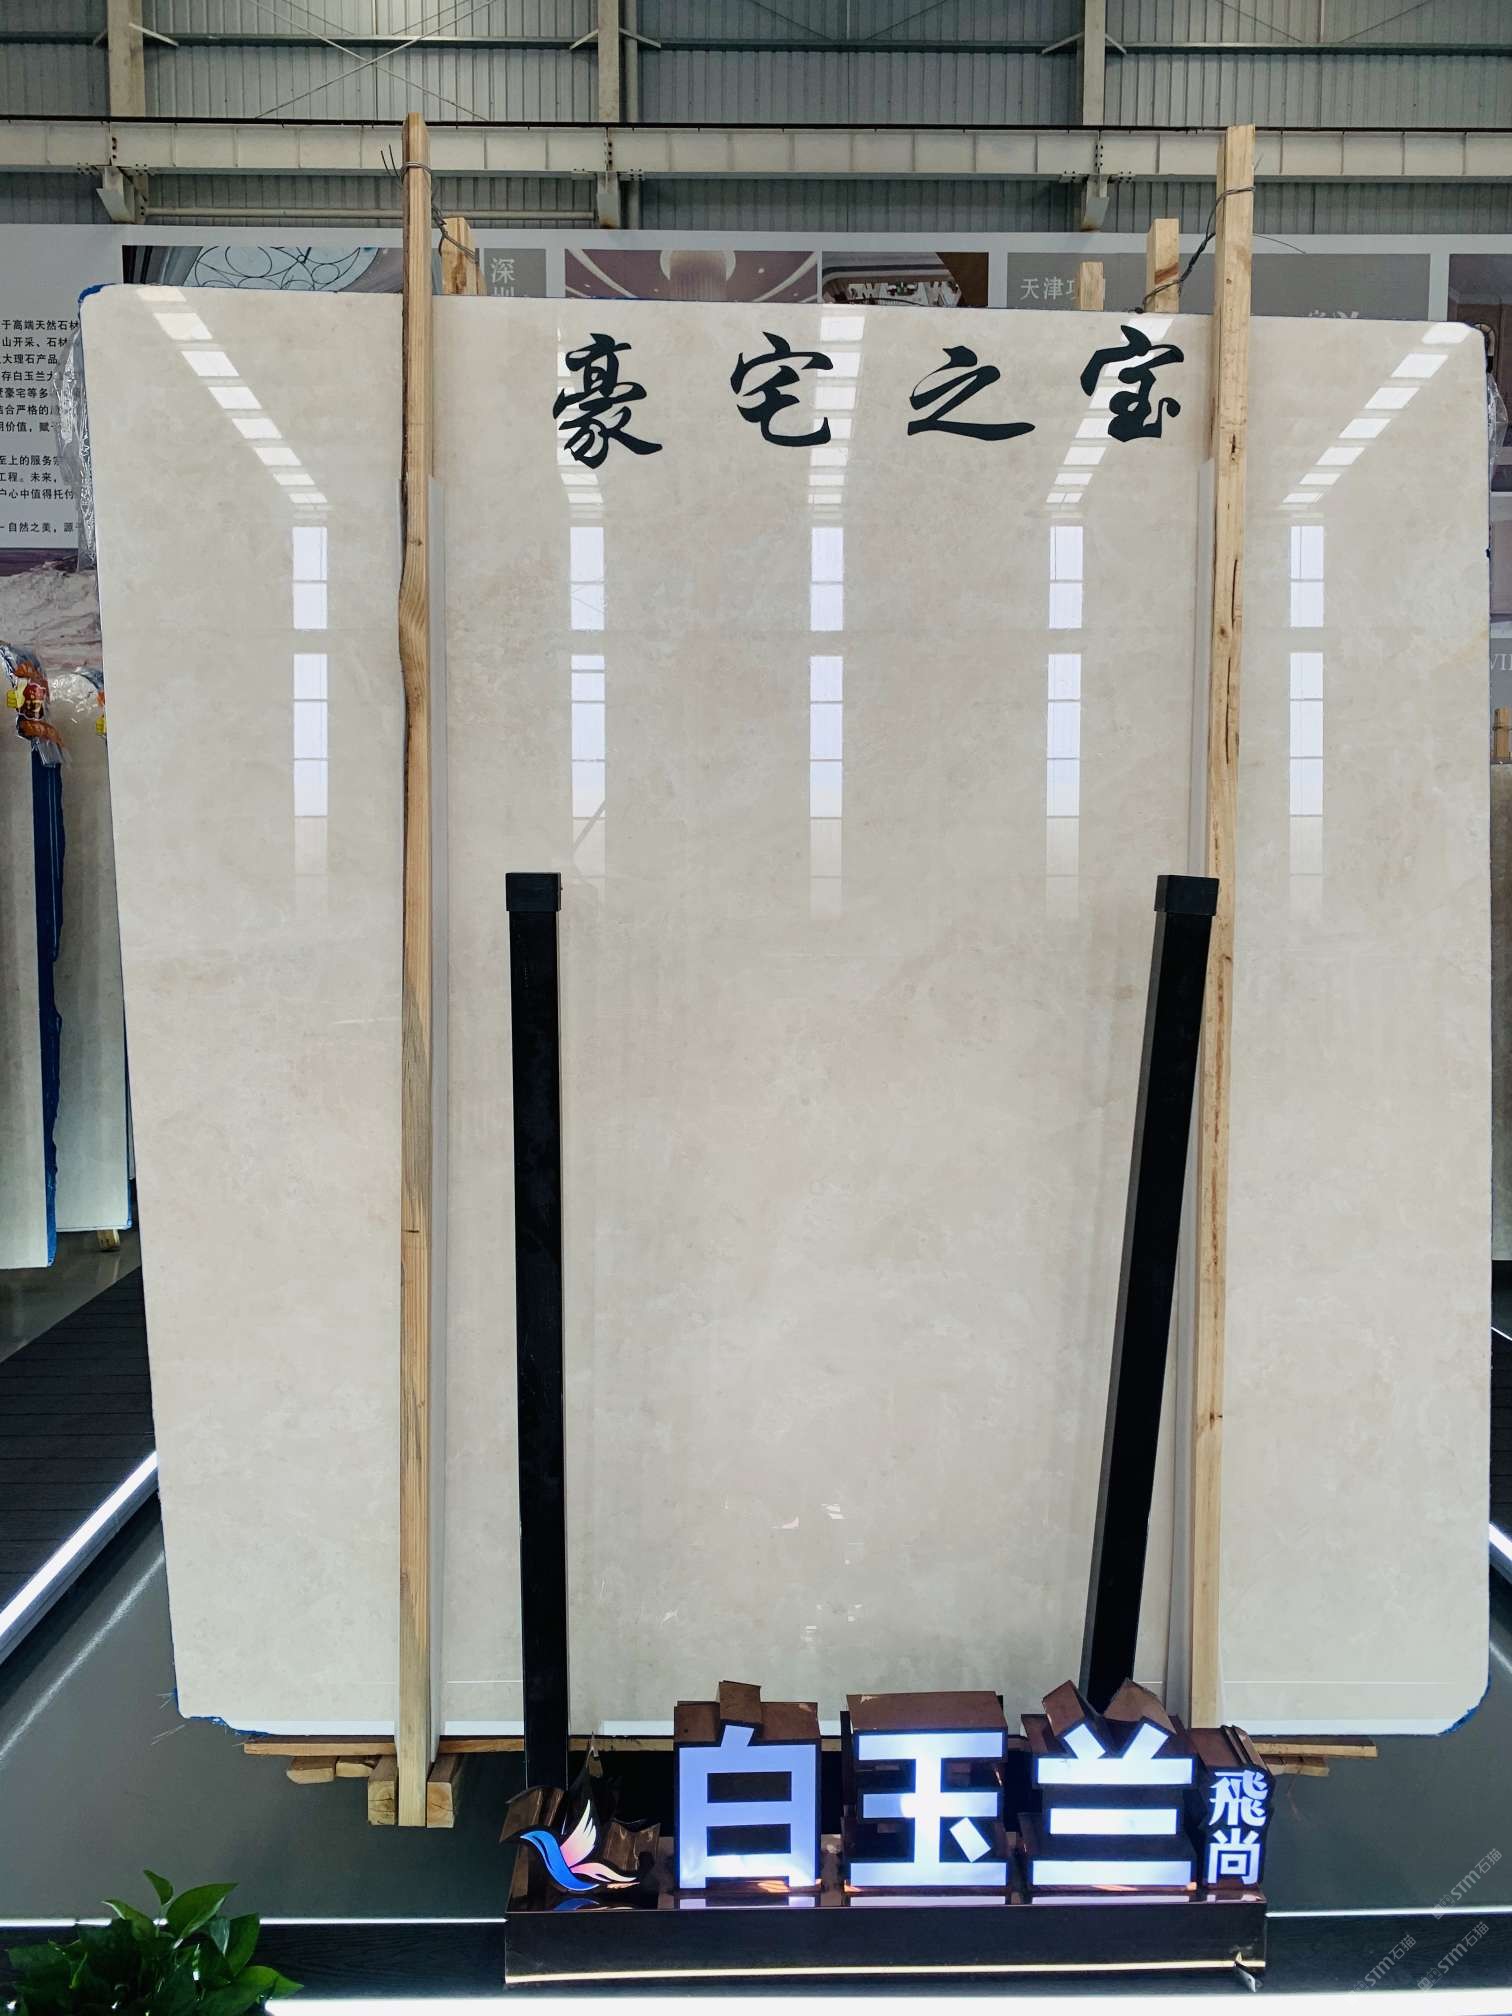 深圳
天津项
于高端天然石材
山开采、石材
大理石产品
存白玉兰大
豪宅等多
结合严格的
用价值，赋予
至上的服务宗
工程。未来，
户心中值得托付
自然之美，源于
豪宅之宝
白玉兰
飛尚
STM石猫
STM石猫
STM石猫